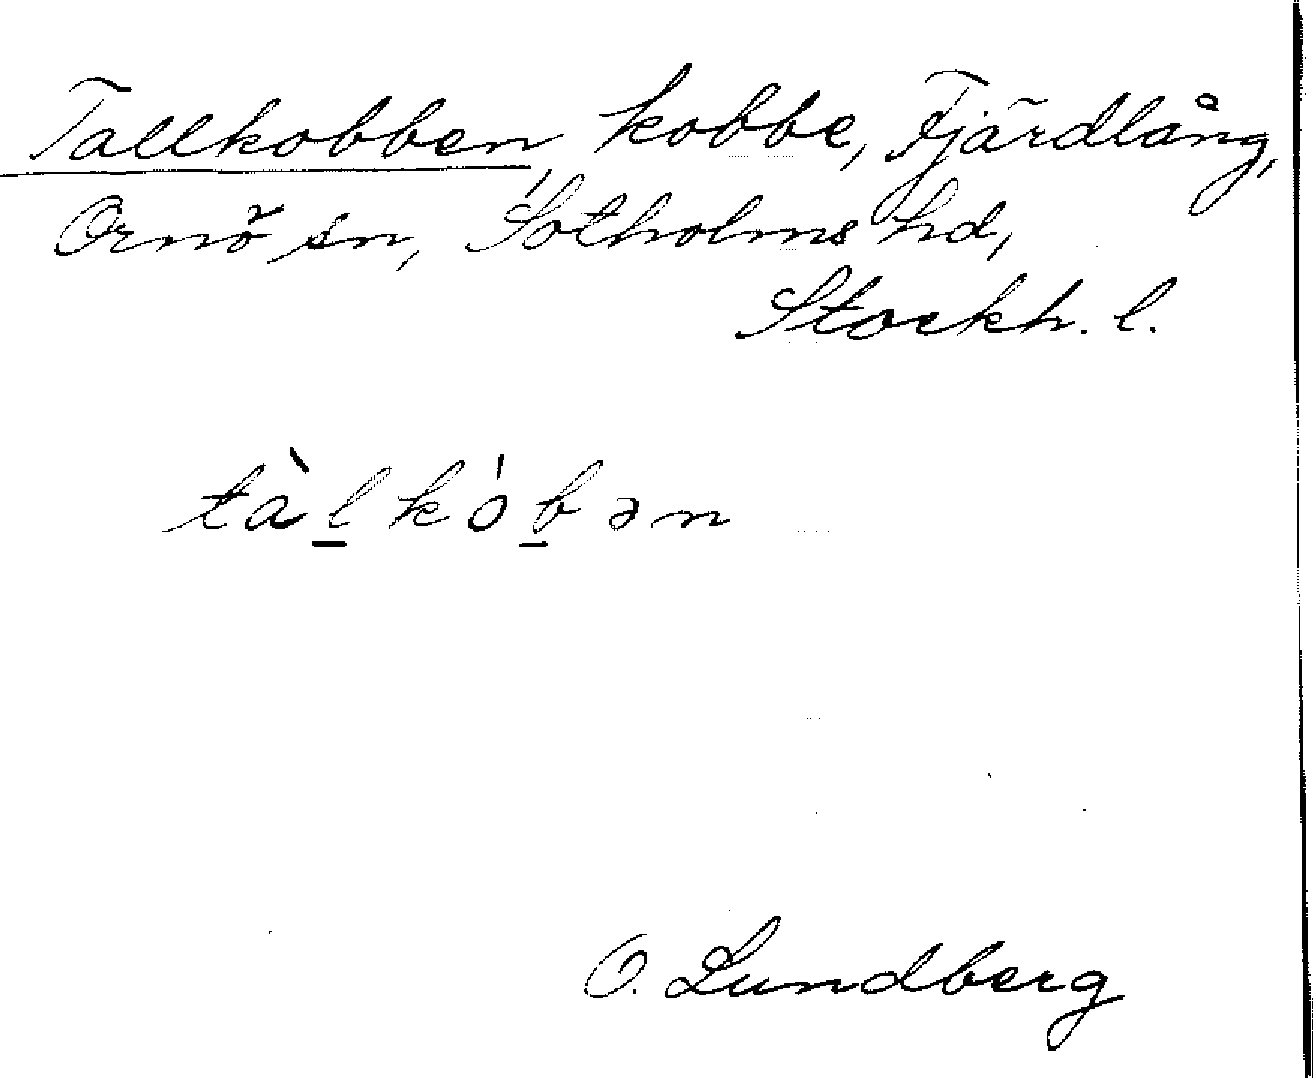 Tallkobben, kobbe, Fjärdlång,
Ornö sn, Sotholms hd,
Stockh. l.
tàl̲kób̲ən
O. Lundberg